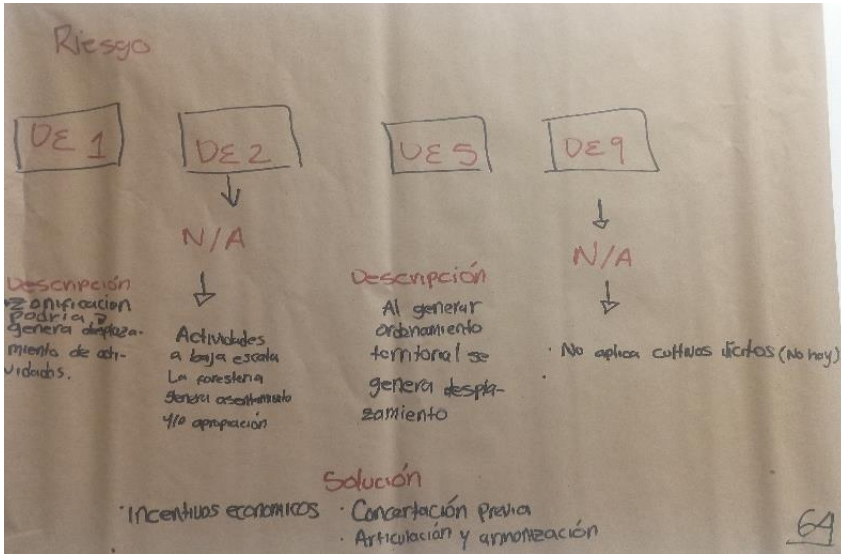 Riesgo
DE 1
DE 2
DE 5
DE 9
N/A
N/A
Descripción
zonificacion
podria?
genera desplaza-
miento de acti-
vidades.
Actividades
a baja escala
La foresteria
genera asentamiento
y/o apropiación
Descripción
Al generar
ordenamiento
territorial se
genera despla-
zamiento
· No aplica cultivos ilicitos (No hay)
Solución
· Incentivos economicos · Concertación previa
· Articulación y armonización
64